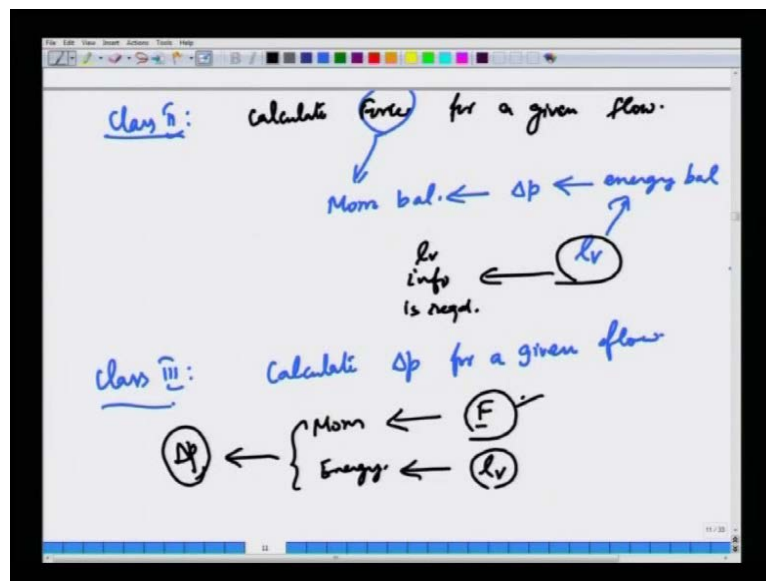 File Edit View Insert Actions Tools Help
Class II: Calculate Force for a given flow.
Mom bal. ← Δp ← energy bal
lv
lv
info
is reqd.
Class III: Calculate Δp for a given flow.
Δp ← { Mom ← F
Energy. ← lv
11 / 33
11